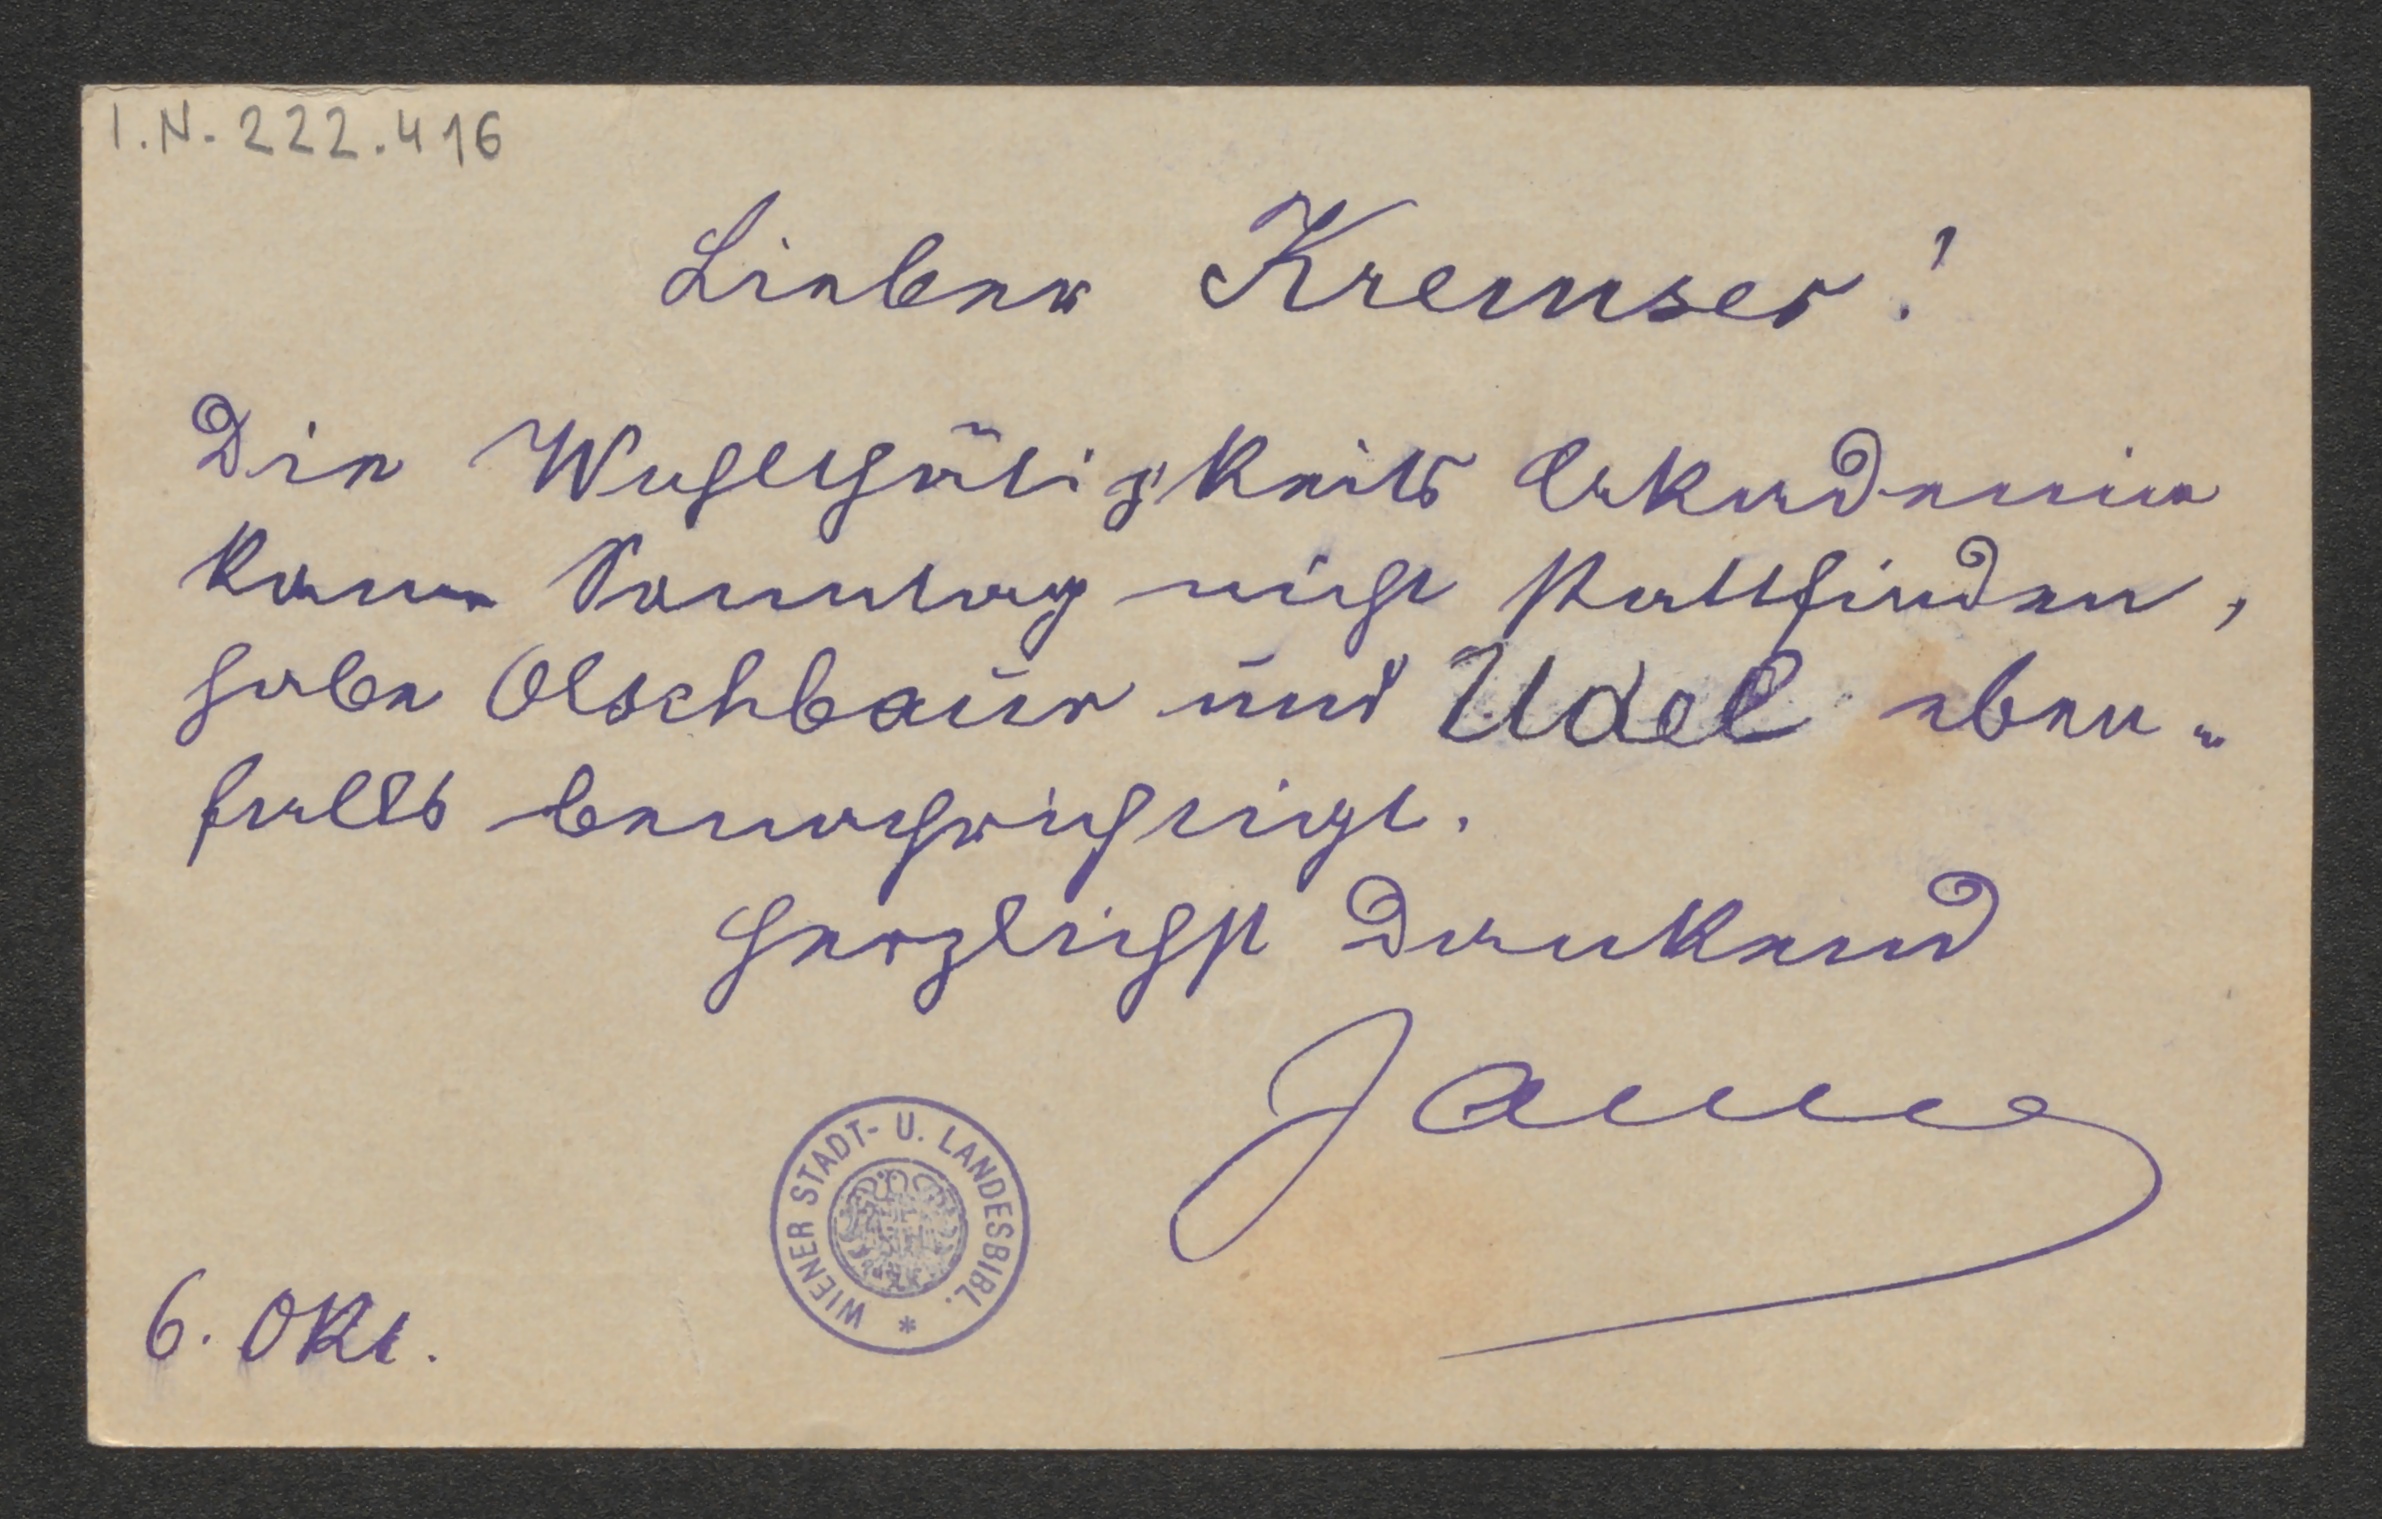 I.N. 222.416
Lieber Kremser!
Die Wohlthätigkeits Akademie
kann Sonntag nicht stattfinden,
habe Olschbaur und Udel eben-
falls benachrichtigt.
Herzlichst dankend
WIENER STADT- U. LANDESBIBL. *
6. Okt.